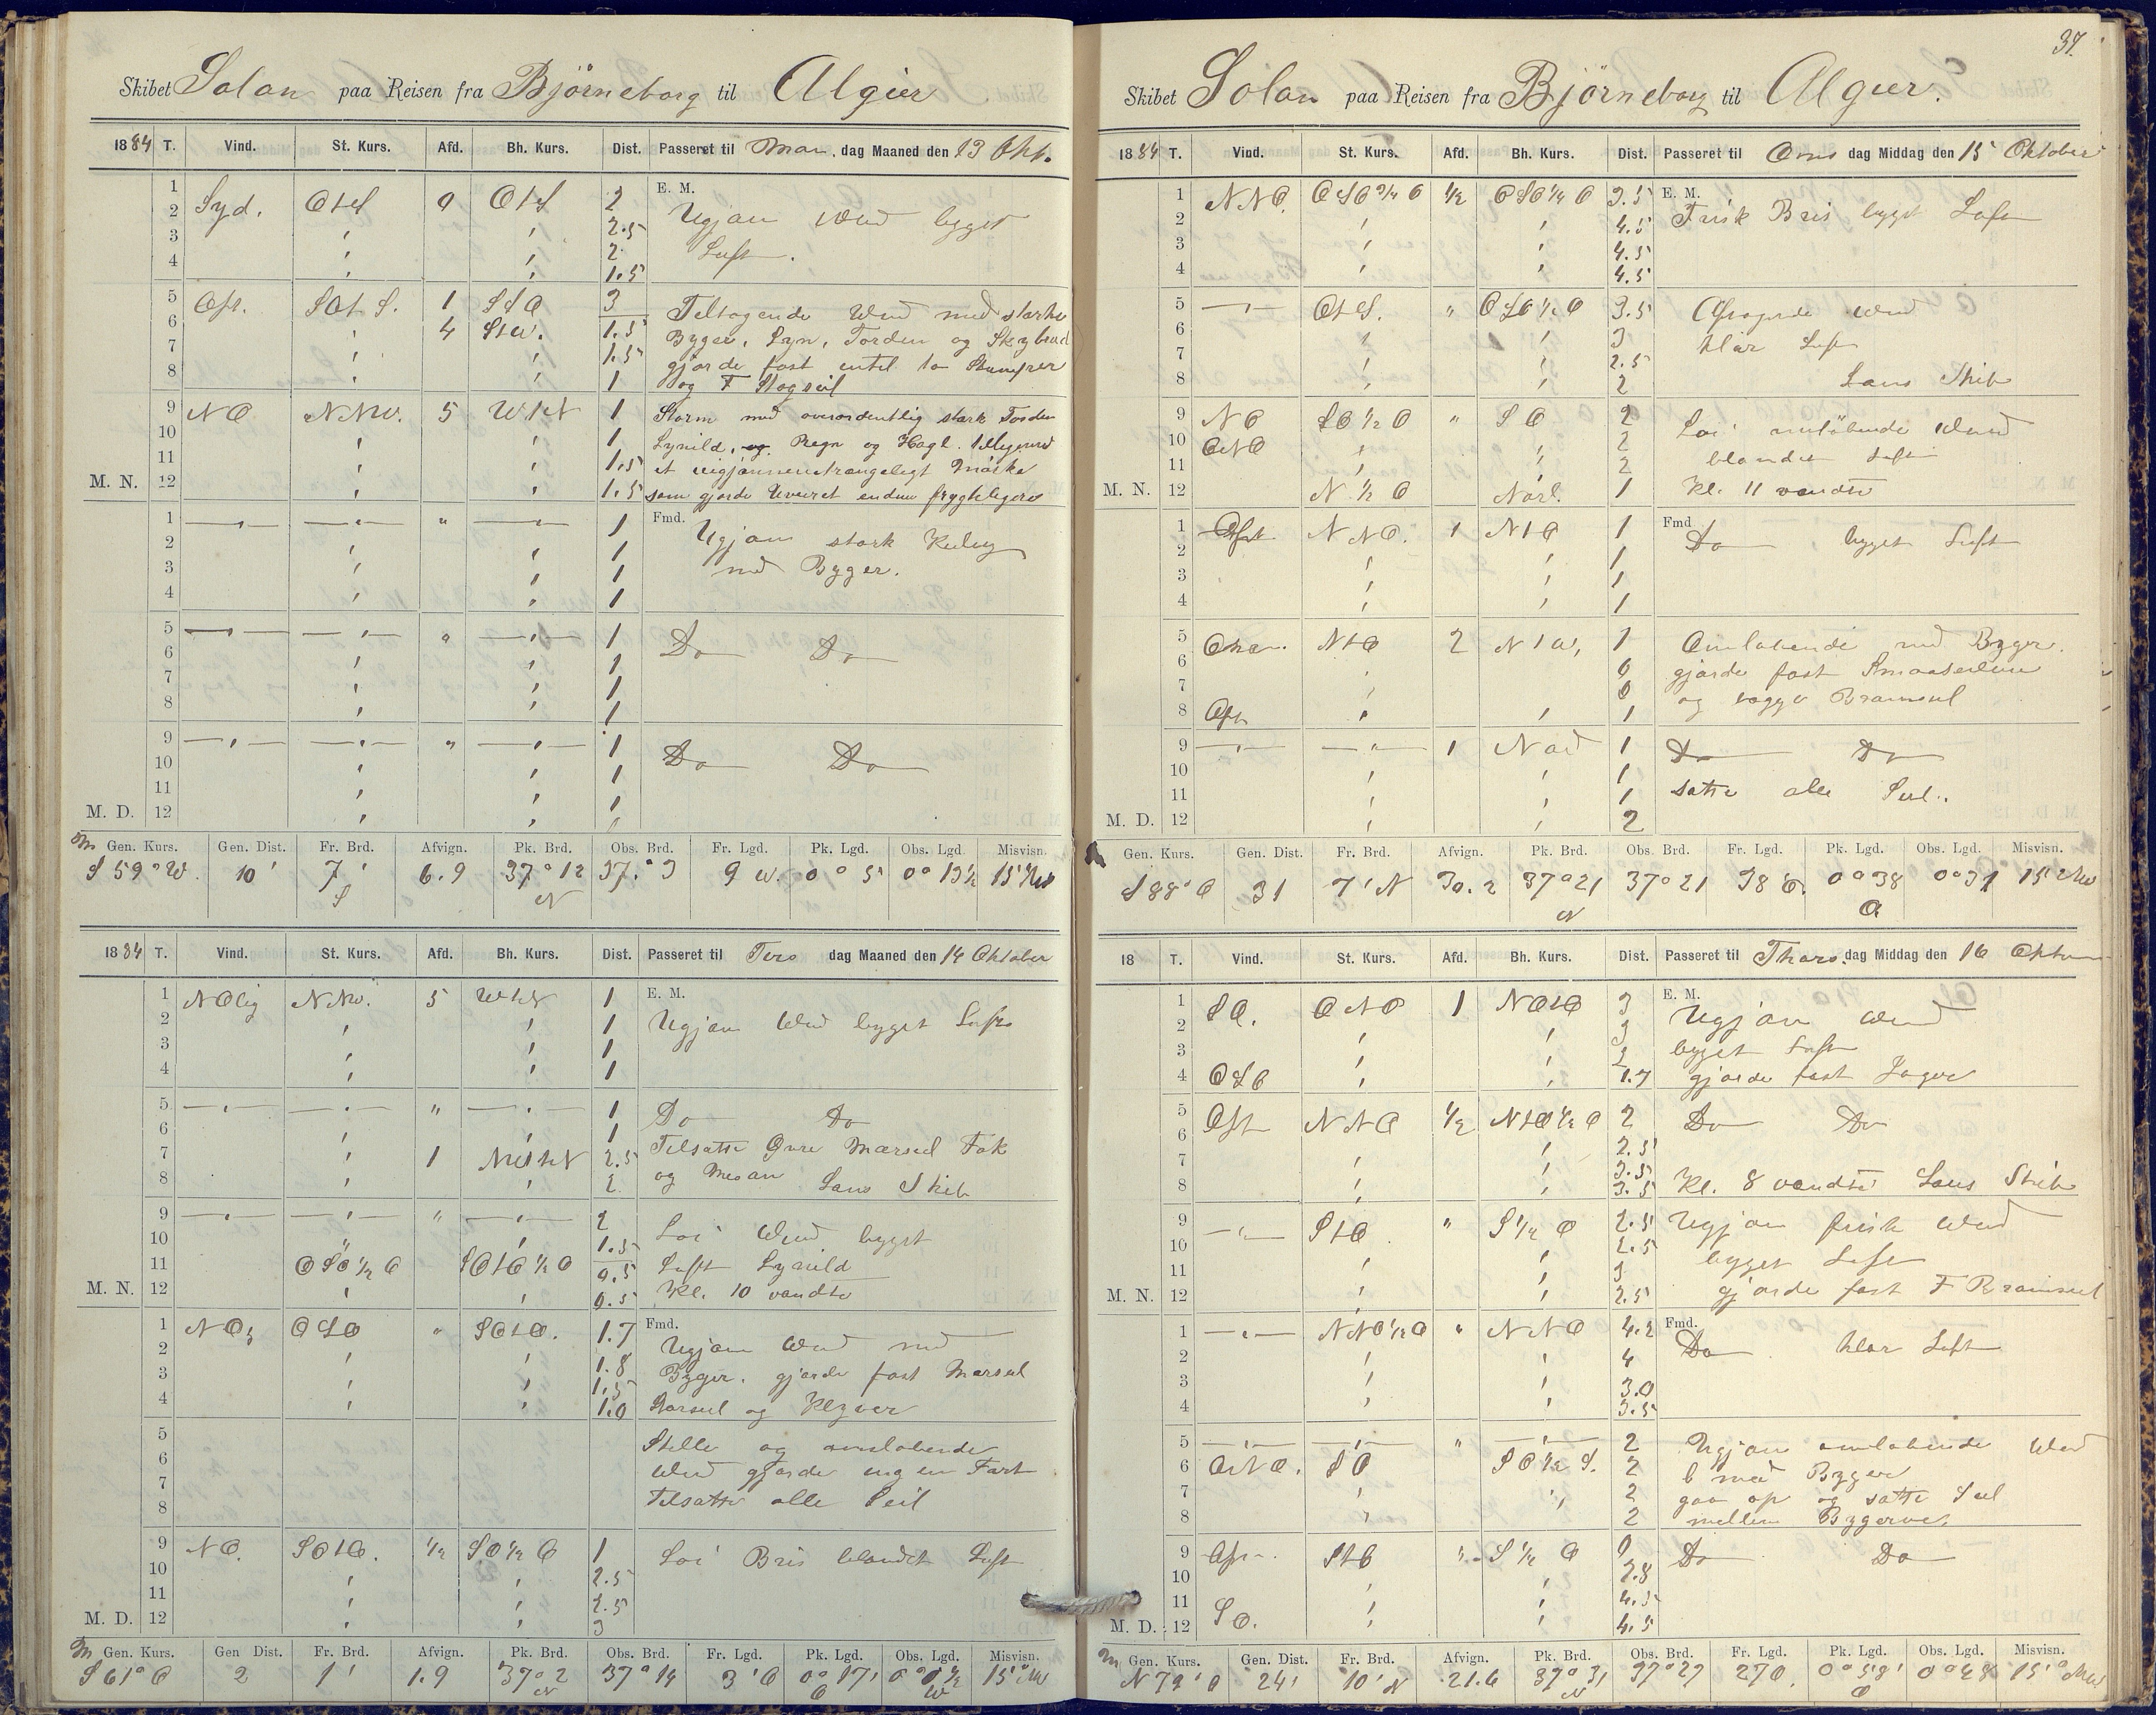 Skibet Solon paa Reisen fra Björneborg til Algier
1884 T. Vind. St. Kurs. Afd. Bh. Kurs. Dist. Passeret til Man. dag Maaned den 13 Okt.
E. M.
1 Syd. OtS 0 OtS 2 Ugjævn Wind bygget
2 2.5
3 2 Luft.
4 1.5
5 Ost. SOtS. 1 SSO 3 Teltagende Wind med starke
6 4 StW. 1.5 Byger, Lyn, Torden og Skybrud
7 1.5 gjorde fast intil to Stumper
8 1 og F Stagseil
9 NO NNW. 5 WtN 1 Storm med overordentlig stærk Torden
10 1 Lynild, og Regn og Hagl. tilligemed
11 1.5 et uigjennemtrængeligt Mörke
M. N. 12 1.5 som gjorde Uveiret endnu frygteligere
Fmd.
1 " 1 Ugjævn stærk Kuling
2 1
3 1 med Byger.
4 1
5 " 1 Do Do
6 1
7 1
8 1
9 " 1 Do Do
10 1
11 1
M. D. 12
Gen. Kurs. Gen. Dist. Fr. Brd. Afvign. Pk. Brd. Obs. Brd. Fr. Lgd. Pk. Lgd. Obs. Lgd. Misvisn.
S 59° W. 10' 7' 6.9 37° 12 37.° 3 9 W. 0° 5' 0° 13½ 15° NW
S N
1884 T. Vind. St. Kurs. Afd. Bh. Kurs. Dist. Passeret til Tirs dag Maaned den 14 Oktober
E. M.
1 NOlig NNW. 5 WtN 1
2 1 Ugjævn Wind bygget Luft
3 1
4 1
5 " 1 Do Do
6 1
7 1 NWtN 2.5 Tilsatte Övre Mærseil Fok
8 2 og Mesan Lans Skib
9 " 2
10 1.5 Löi Wind bygget
11 OSO½O SOtO½O 0.5 Luft Lynild
M. N. 12 0.5 Kl. 10 vendte
Fmd.
1 NO, OSO " SOtO. 1.7 Ugjævn Wind med
2 1.8
3 1.5 Byger. gjorde fast Mærseil
4 1.0 Storseil og Klyver
5 Stille og omlöbende
6 Wind gjorde ingen Fart
7 Tilsatte alle Seil
8
9 NO. SOtO. ½ SO½O 1 Löi Bris blandet Luft
10 2.5
11 2.5
M. D. 12 3
Gen. Kurs. Gen Dist. Fr. Brd. Afvign. Pk. Brd. Obs. Brd. Fr. Lgd. Pk. Lgd. Obs. Lgd. Misvisn.
S 61° O 2 1' 1.9 37° 2 37° 14 3' O 0° 17' 15° NW
N O W
37.
Skibet Solon paa Reisen fra Björneborg til Algier.
1884 T. Vind. St. Kurs. Afd. Bh. Kurs. Dist. Passeret til Ons dag Middag den 15 Oktober
E. M.
1 NNO. OSO¾O ½ OSO¼O 3.5
2 4.5 Frisk Bris bygget Luft
3 4.5
4 4.5
5 OtS. " OSO½O 3.5 Aftagende Wind
6 3 klar Luft
7 2.5
8 2 Lans Skib
9 NO SO½O " SO 2 Löi omlöbende Wind
10 ONO 2
11 2 blandet Luft
M. N. 12 N½O Nörl. 1 Kl. 11 vendte
Fmd
1 Ost NNO. 1 NtO 1 Do bygget Luft
2 1
3 1
4 1
5 NtO 2 NtW, 1 Omlöbende med Byger.
6 0 gjorde fast Smaaseilene
7 0
8 Ost 1 og Bramseil
9 1 Nord 1 Do Do
10 1
11 1 satte alle Seil.
M. D. 12 2
Gen. Kurs. Gen. Dist. Fr. Brd. Afvign. Pk. Brd. Obs. Brd. Fr. Lgd. Pk. Lgd. Obs. Lgd. Misvisn.
S 88° O 31 7' N 30.2 37° 21 37° 21 38 O. 0° 38 0° 31 15° NW
N O
18 T. Vind. St. Kurs. Afd. Bh. Kurs. Dist. Passeret til Thors. dag Middag den 16 Oktober
E. M.
1 SO. ONO 1 NOtO 3 Ugjævn Wind
2 3
3 2 bygget Luft
4 OSO 1.7 gjorde fast Jager
5 Ost NNO ½ NtO½O 2 Do Do
6 2.5
7 3.5
8 3.5 Kl. 8 vendte Lans Skib
9 StO " S½O 2.5 Ugjævn frisk Wind
10 2.5 bygget Luft
11 3
M. N. 12 2.5 gjorde fast F Bramseil
Fmd.
1 NNO½O " NNO 4.2 Do klar Luft
2 4
3 3.0
4 3.5
5 " 2 Ugjævn omlöbende Wind
6 ONO. SO SO½S. 2 med Byger
7 2 op og satte Seil
8 2 mellem Bygerne
9 Ost StO " S½O 0 Do Do
10 2.8
11 SO. 4.5
M. D. 12 4.5
Gen. Kurs. Gen. Dist. Fr. Brd. Afvign. Pk. Brd. Obs. Brd. Fr. Lgd. Pk. Lgd. Obs. Lgd. Misvisn.
N 72° O 24' 10' N 21.6 37° 31 37° 27 27 O. 0° 58' 0° 48 15° NW
N O